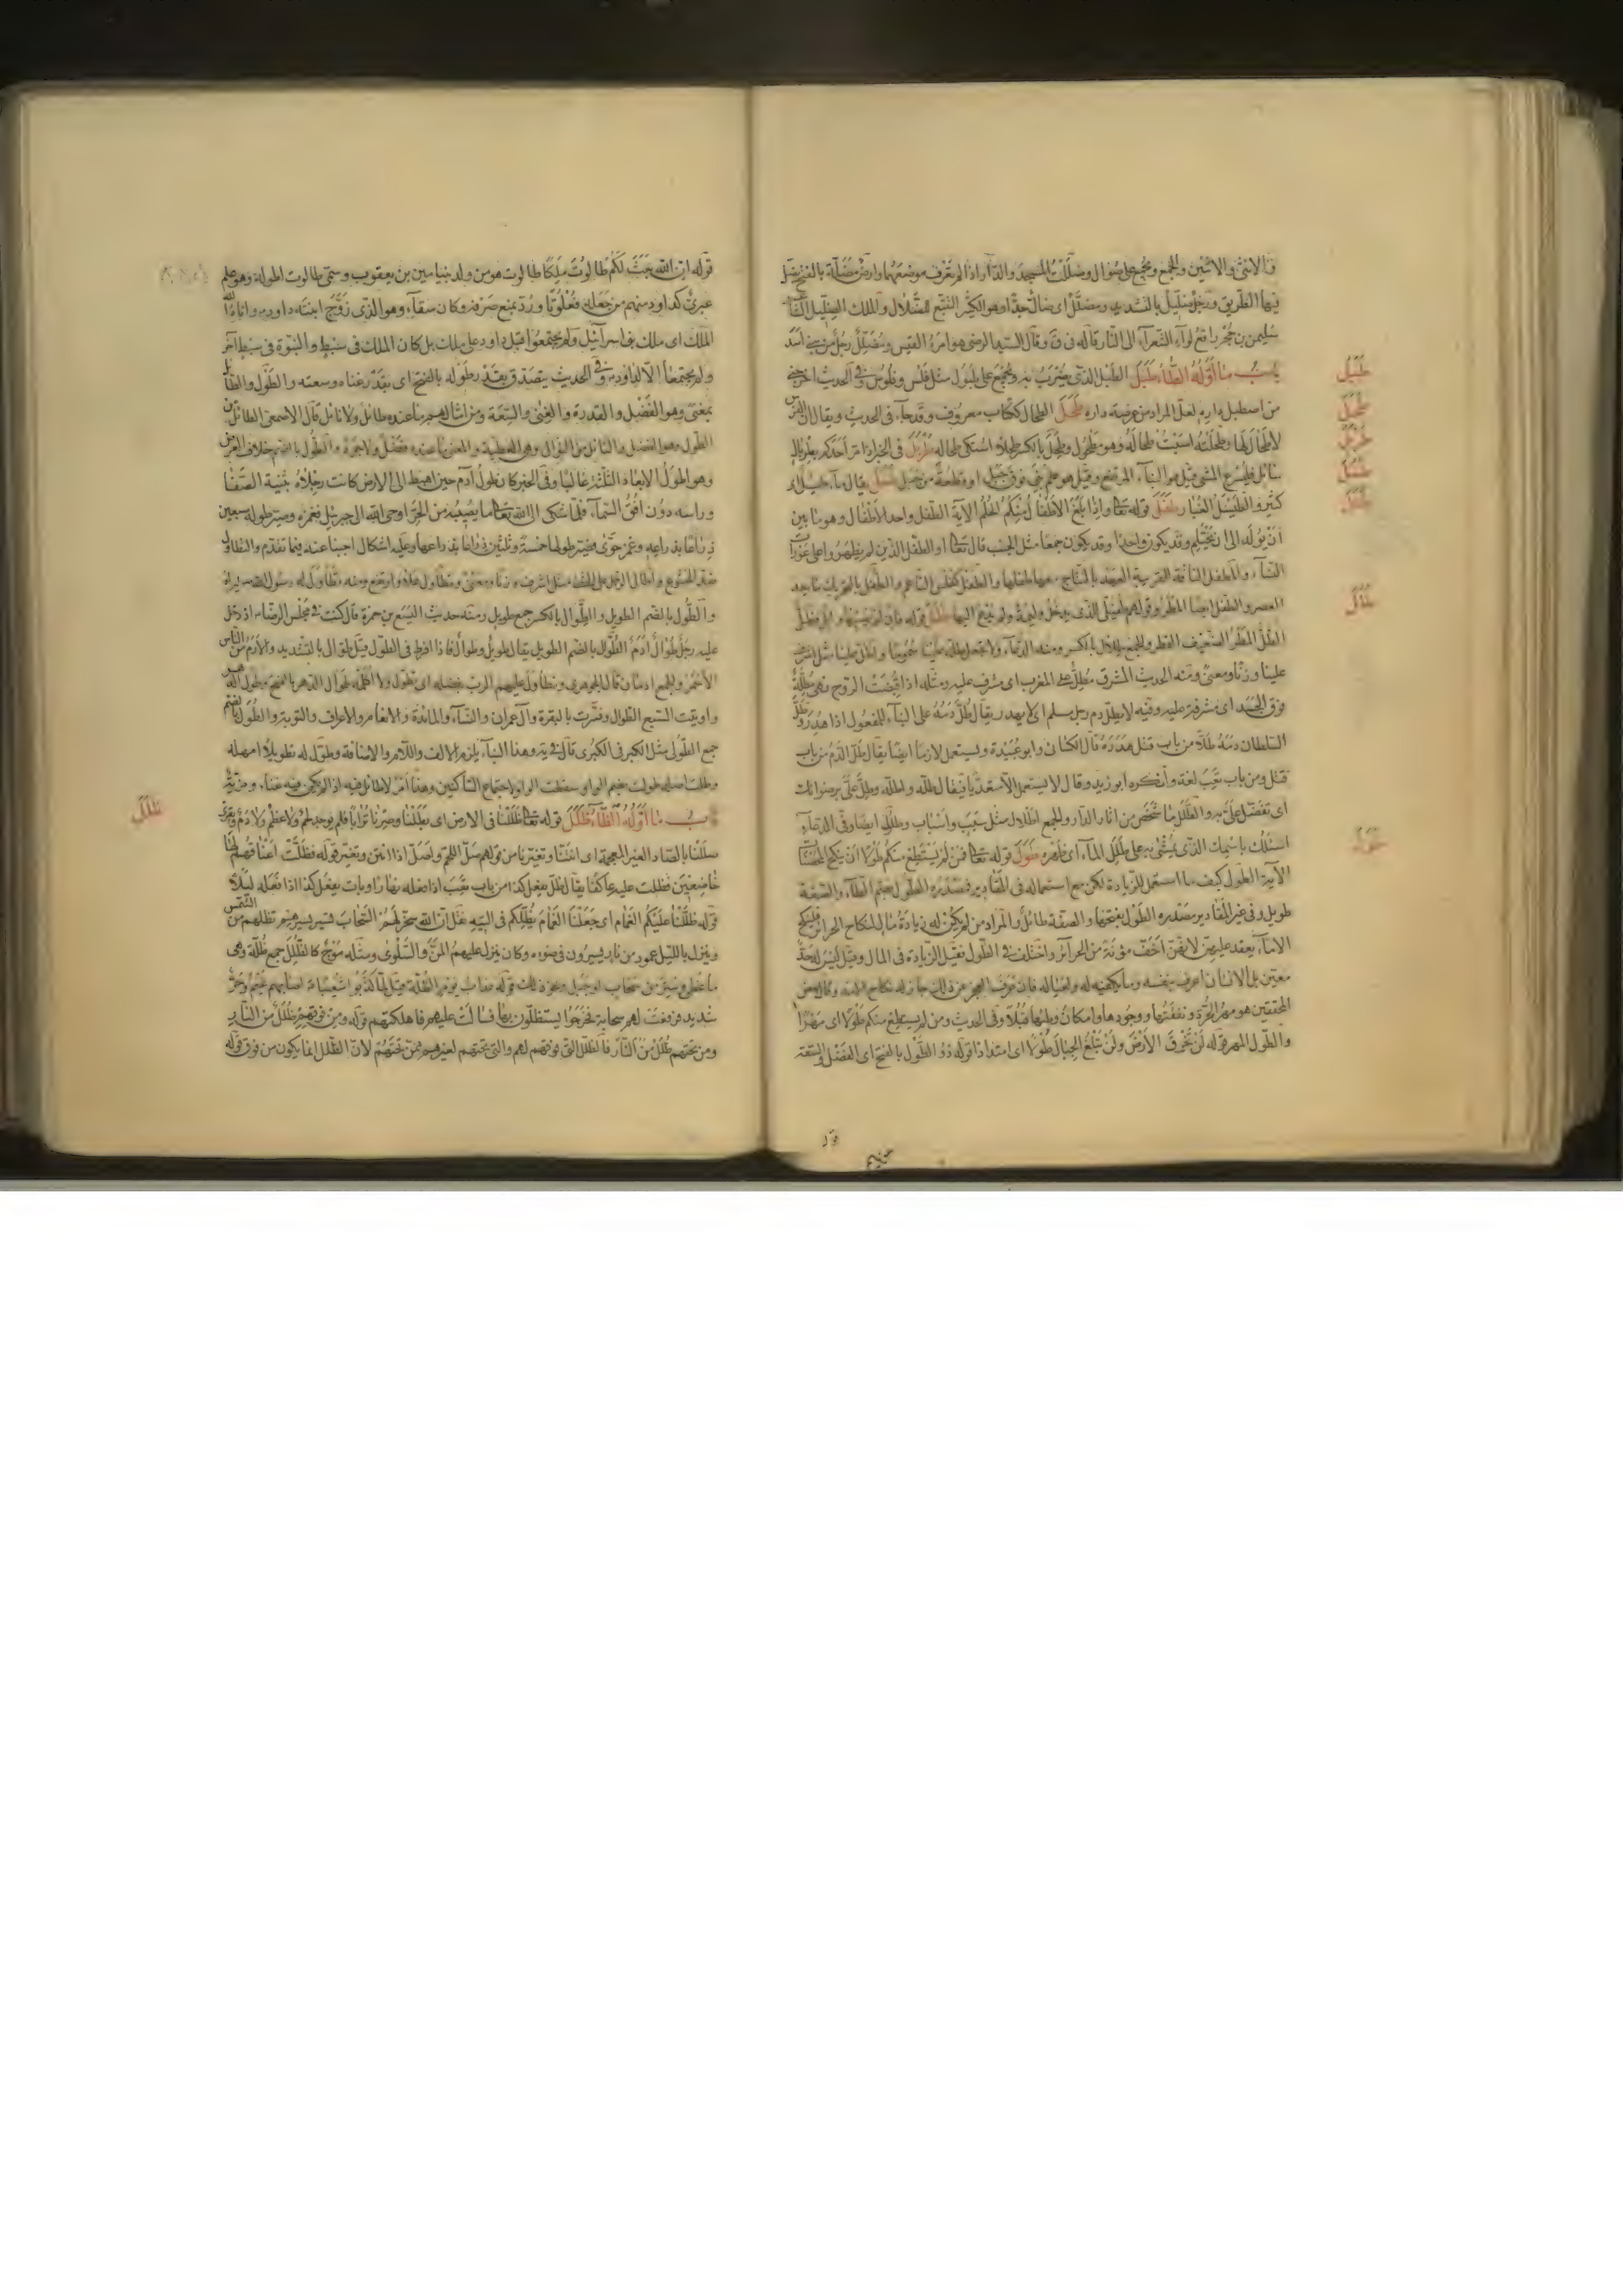 والانثى والاثنين والجمع ويجمع على ضوال وضللت المسجد والدار اذا لم تعرف موضعهما وارض مضلة بالفتح يضل
فيها الطريق ورجل ضليل بالتشديد ومضلل اى ضال جدا وهو الكثير التتبع للضلال والملك الضليل
سليمن بن حجر رافع لواء الشعراء الى النار قاله فى ق وقال السيد الرضى هو امرؤ القيس ومضلل رجل من بنى اسد
باب ما اوله الطاء طبل الطبل الذى يضرب به ويجمع على طبول مثل فلس وفلوس وفى الحديث
من اصطبل داره لعل المراد من عرصة داره طحل الطحال ككتاب معروف وقد جاء فى الحديث ويقال ان الفرس
لا طحال لها وطحلته اصبت طحاله وهو مطحول وطحل بالكسر طحلا اشتكى طحاله طربل فى الخبر اذا مر احدكم بطربال
مائل فليسرع المشى قيل هو البناء المرتفع وقيل هو علم يبنى فوق جبل او قطعة من جبل طسل يقال ماء طيسل اى
كثير والطيسل الغبار طفل قوله تعالى واذا بلغ الاطفال منكم الحلم الآية الطفل واحد الاطفال وهو ما بين
ان يولد الى ان يحتلم وقد يكون واحدا وقد يكون جمعا مثل الجنب قال تعالى او الطفل الذين لم يظهروا على عورات
النساء والمطفل الناقة القريبة العهد بالنتاج معها طفلها والطفل كفلس الناعم والطفل بالتحريك ما بعد
العصر والطفل ايضا المطر وقولهم طفيلى الذى يدخل وليمة ولم يدع اليها طلل قوله فان لم يصبها وابل فطل
الطل المطر الضعيف القطر والجمع طلال بالكسر ومنه الدعاء ولا تجعل ظله علينا سموما واطل علينا مثل اشرف
علينا وزنا ومعنى ومنه الحديث المشرق مطل على المغرب اى مشرف عليه ومثله اذا قبضت الروح فهى مظلة
فوق الجسد اى مشرفة عليه وفيه لا يطل دم رجل مسلم اى لا يهدر يقال طل دمه على البناء للمفعول اذا هدر وطل
السلطان دمه طلا من باب قتل هدره قال الكسائى وابو عبيدة ويستعمل لازما ايضا يقال طل الدم من باب
قتل ومن باب تعب لغة وانكره ابو زيد وقال لا يستعمل الا متعديا فيقال طله واطله وطل على برضوانك
اى تفضل على به والطلل ما شخص من اثار الدار والجمع اطلال مثل سبب واسباب وطلول ايضا وفى الدعاء
اسئلك باسمك الذى يمشى به على طلل الماء اى ظاهره طول قوله تعالى فمن لم يستطع منكم طولا ان ينكح المحصنات
الآية الطول كيف ما استعمل للزيادة لكن مع استعماله فى المقادير فمصدره الطول بضم الطاء والصفة
طويل وفى غير المقادير مصدره الطول بفتحها والصفة طائل والمراد من لم يكن له زيادة مال لنكاح الحرائر فلينكح
الاماء يعقد عليهن لانهن اخف مؤنة من الحرائر واختلف فى الطول فقيل الزيادة فى المال وقيل ليس له حد
معين بل الانسان اعرف بنفسه وما يكفيه له ولعياله فان عرف العجز عن ذلك جاز له نكاح الامة وقال بعض
المحققين هو مهر الحرة ونفقتها ووجودها وامكان وطئها قبلا وفى الحديث ومن لم يستطع منكم طولا اى مهرا
والطول المهر قوله لن تخرق الارض ولن تبلغ الجبال طولا اى امتدادا قوله ذو الطول بالفتح اى الفضل والسعة
طبل
طحل
طربل
طسل
طفل
طلل
طول
قوله ان الله بعث لكم طالوت ملكا طالوت هو من ولد بنيامين بن يعقوب وسمى طالوت لطوله وهو علم
عبرى كداود منهم من جعله فعلوتا ورد بمنع صرفه وكان سقاء وهو الذى زوج ابنته داود واتاه الله
الملك اى ملك بنى اسرائيل ولم يجتمعوا قبل داود على ملك بل كان الملك فى سبط والنبوة فى سبط آخر
ولم يجتمعا الا لداود وفى الحديث يتصدق بقدر طوله بالفتح اى بقدر غناه وسعته والطول والطائل
بمعنى وهو الفضل والقدرة والغنى والسعة ومن امثالهم ما عنده طائل ولا نائل قال الاصمعى الطائل من
الطول وهو الفضل والنائل من النوال وهى العطية والمعنى ما عنده فضل ولا جود والطول بالضم خلاف العرض
وهو اطول الابعاد الثلثة غالبا وفى الخبر كان طول آدم حين اهبط الى الارض كانت رجلاه بثنية الصفا
وراسه دون افق السماء فلما شكى الى الله تعالى ما يصيبه من الحر اوحى الله الى جبرئيل فغمزه وصير طوله سبعين
ذراعا بذراعه وغمز حوى فصير طولها خمسة وثلثين ذراعا بذراعها وعليه اشكال اجبنا عنه فيما تقدم والتطاول
والطول بالضم الطويل والطوال بالكسر جمع طويل ومنه حديث اليسع بن حمزة قال كنت فى مجلس الرضا اذ دخل
عليه رجل طوال آدم الطوال بالضم الطويل يقال طويل وطوال فاذا افرط فى الطول قيل طوال بالتشديد والآدم من الناس
الاسمر والجمع ادمان قال الجوهرى وتطاول عليهم الرب بفضله اى تطول ولا اكلمه طوال الدهر بالفتح
واوتيت السبع الطول وفسرت بالبقرة وآل عمران والنساء والمائدة والانعام والاعراف والتوبة والطول بالضم
جمع الطولى مثل الكبر فى الكبرى قال فى يه وهذا البناء يلزمه الالف واللام والاضافة وطول له تطويلا امهله
وطلت اصله طولت بضم الواو سقطت الواو لاجتماع الساكنين وهذا امر لا طائل فيه اذا لم يكن فيه غناء ومزية
باب ما اوله الظاء ظلل قوله تعالى ءاذا ضللنا فى الارض اى بطلنا وصرنا ترابا فلم يوجد لحم ولا عظم ولا دم ويقرئ
صللنا بالصاد الغير المعجمة اى انتنا وتغيرنا من قولهم صل اللحم واصل اذا انتن وتغير قوله فظلت اعناقهم لها
خاضعين فظلت عليه عاكفا يقال ظل يفعل كذا من باب تعب اذا فعله نهارا وبات يفعل كذا اذا فعله ليلا
قوله ظللنا عليكم الغمام اى جعلنا الغمام يظلكم فى التيه نقل ان الله سخر لهم السحاب فتسير بسيرهم تظلهم من الشمس
وينزل بالليل عمود من نار يسيرون فى ضوءه وكان ينزل عليهم المن والسلوى ومثله موج كالظلل جمع ظلة وهى
ما غطى وستر من سحاب او جبل ونحو ذلك قوله عذاب يوم الظلة قيل لما كذبوا شعيبا اصابهم غيم وحر
شديد فرفعت لهم سحابة فخرجوا يستظلون بها فسالت عليهم فاهلكتهم قوله ومن فوقهم ظلل من النار
ومن تحتهم ظلل من النار فالظلل التى فوقهم لهم والتى تحتهم لغيرهم ممن تحتهم لان الظلل انما يكون من فوق قوله
ظلل